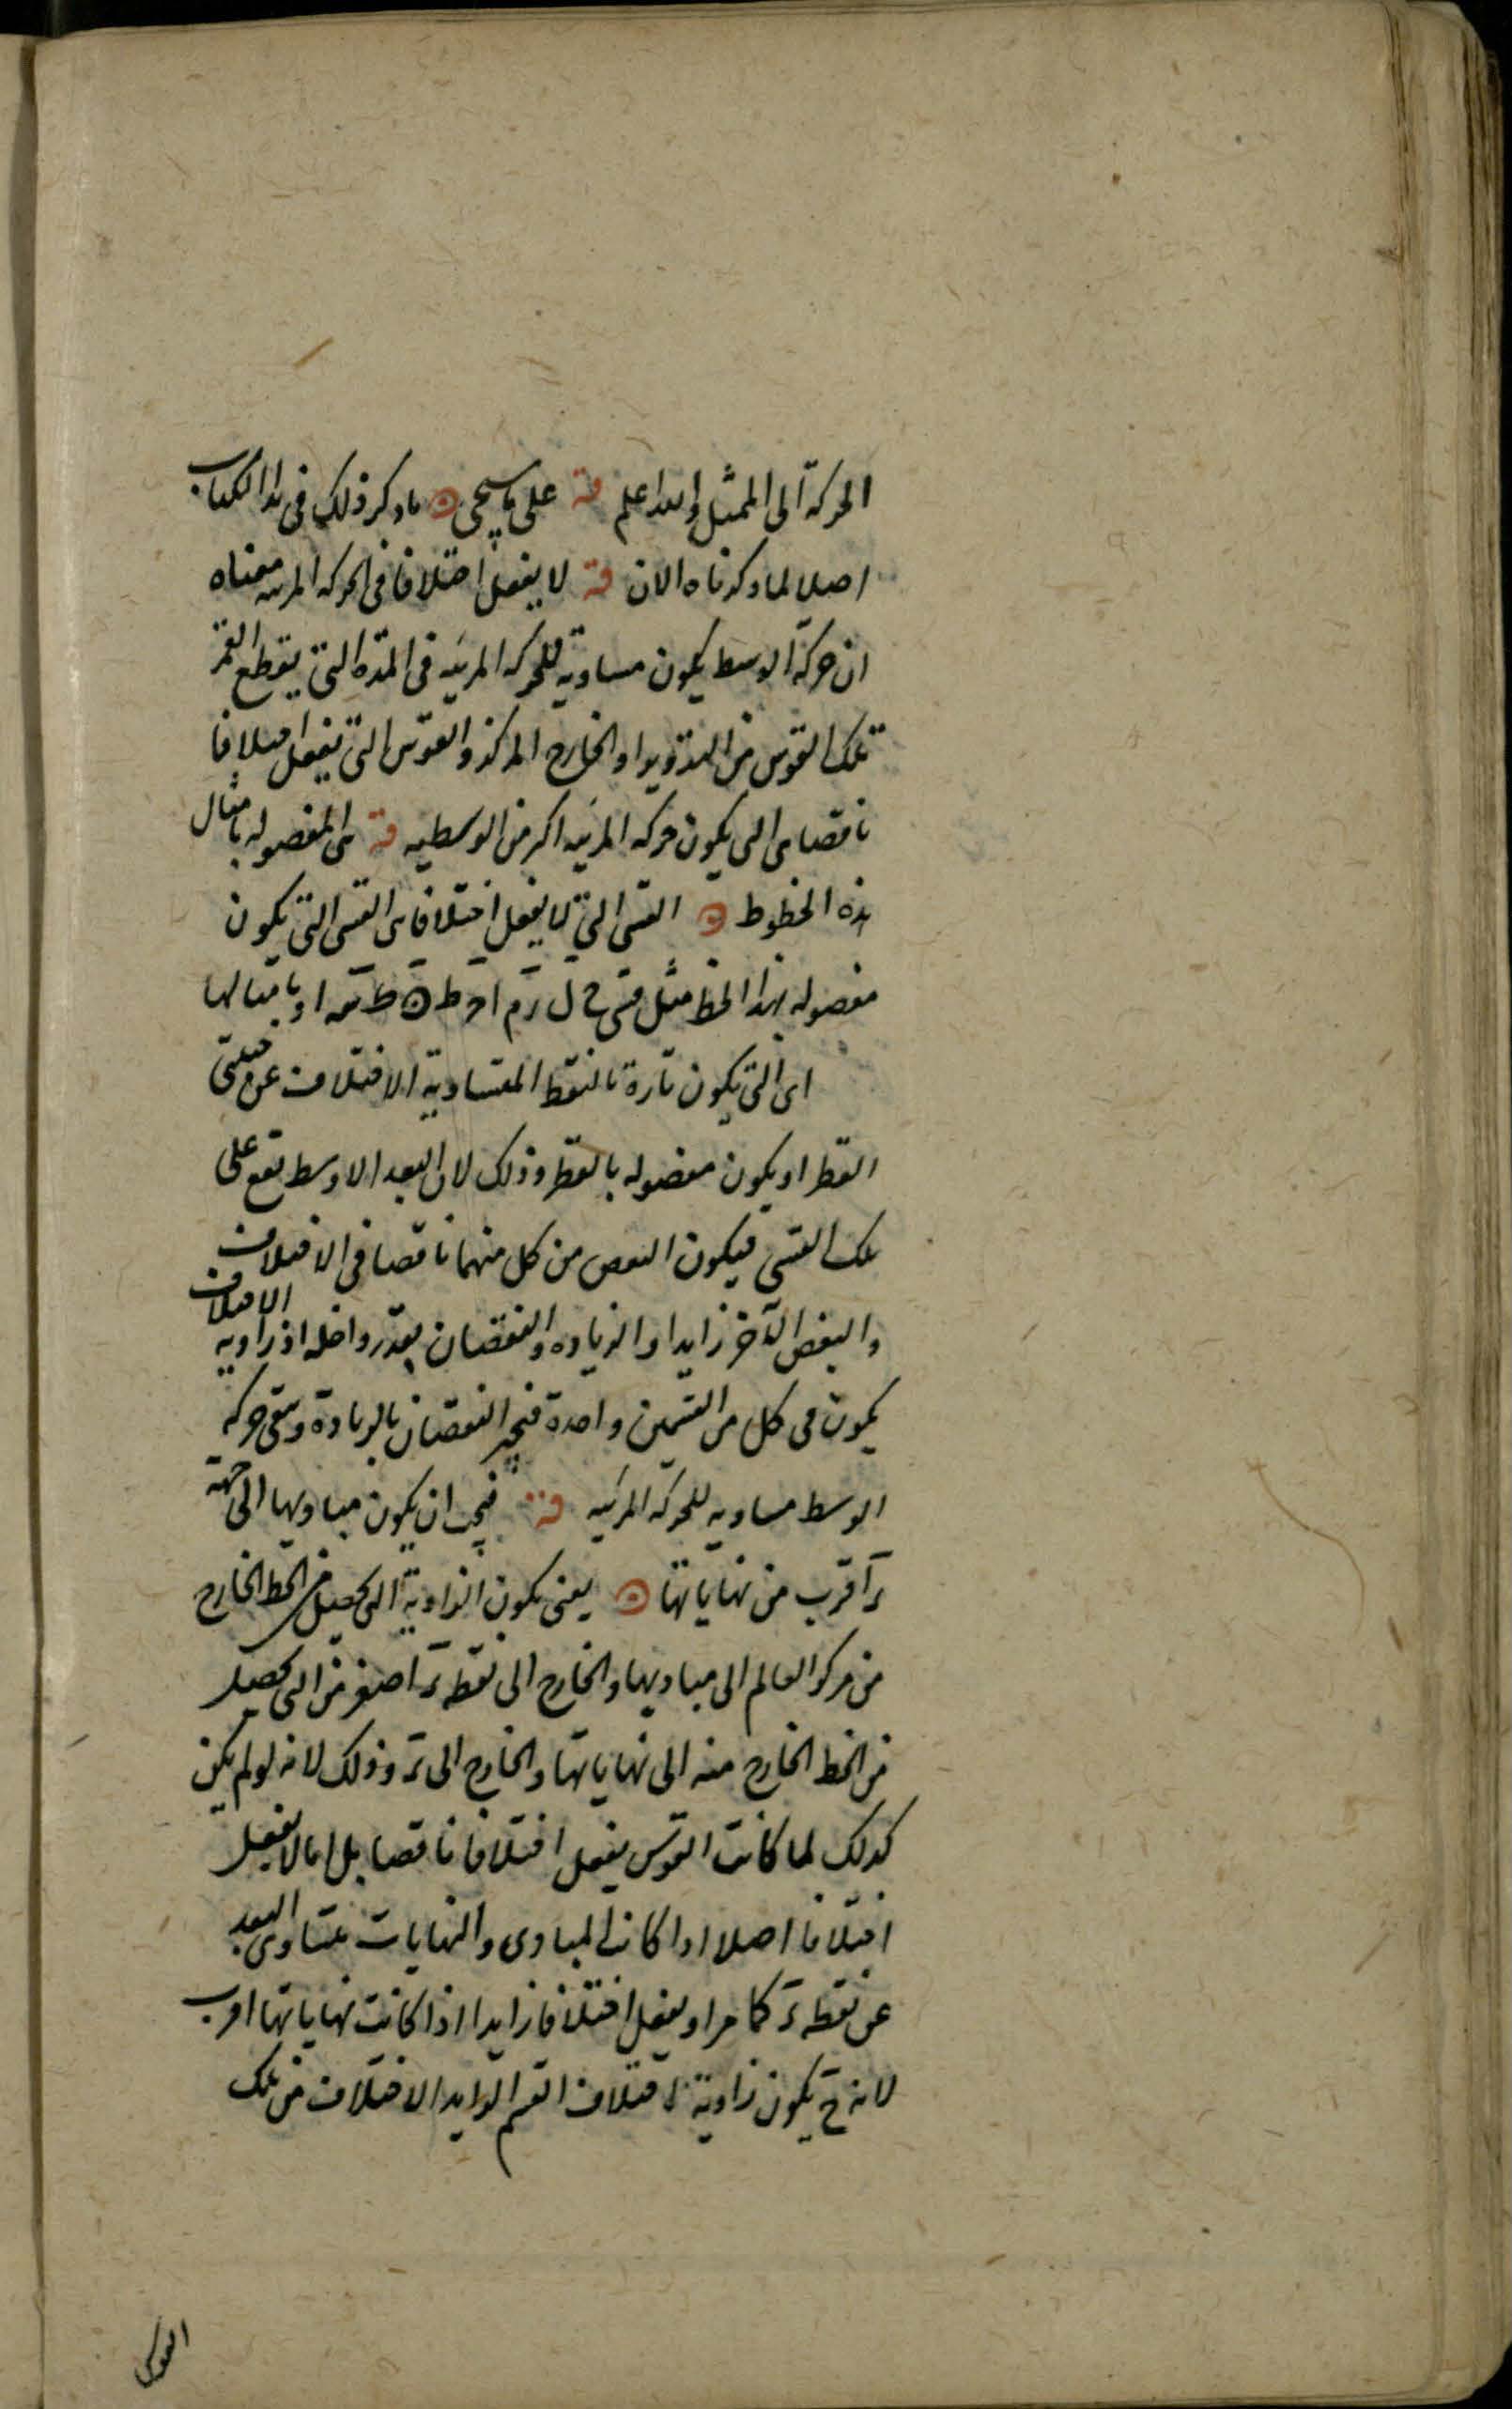 الحركة الى الممثل والله اعلم قه على ما سيجى ما ذكر ذلك فى هذا الكتاب
اصلا لما ذكرناه الان قه لا يفعل اختلافا فى الحركه المرئيه معناه
ان حركة الوسط يكون مساوية للحركه المرئيه فى المدة التى يقطع القمر
تلك القوس من التدوير او الخارج المركز والقوس التى يفعل اختلافا
ناقصا هى التى يكون حركه المرئيه اكثر من الوسطيه قه هى المفصوله بامثال
هذه الخطوط القسى التى لا يفعل اختلافا هى القسى التى يكون
مفصوله بهذا الخط مثل قسى او بامثالها
اى التى يكون تارة بالنقط المتساوية الاختلاف عن جنبتى
القطر او يكون مفصوله بالقطر وذلك لان البعد الاوسط تقع على
تلك القسى فيكون البعض من كل منهما ناقصا فى الاختلاف
والبعض الآخر زايدا والزياده والنقصان بقدر واحد اذ زاويه الاختلاف
يكون فى كل من القسمين واحدة فينجبر النقصان بالزيادة وتبقى حركه
الوسط مساويه للحركه المرئيه قه فيجب ان يكون مباديها الى جهة
اقرب من نهاياتها يعنى يكون الزاوية التى تحصل من الخط الخارج
من مركز العالم الى مباديها والخارج الى نقطه اصغر من التى تحصل
من الخط الخارج منه الى نهاياتها والخارج الى وذلك لانه لو لم يكن
كذلك لما كانت القوس يفعل اختلافا ناقصا بل اما لا يفعل
اختلافا اصلا اذا كانت المبادى والنهايات متساوى البعد
عن نقطه كما مر او يفعل اختلافا زايدا اذا كانت نهاياتها اقرب
لانه ح يكون زاوية اختلاف القسم الزايد الاختلاف من تلك
القوس